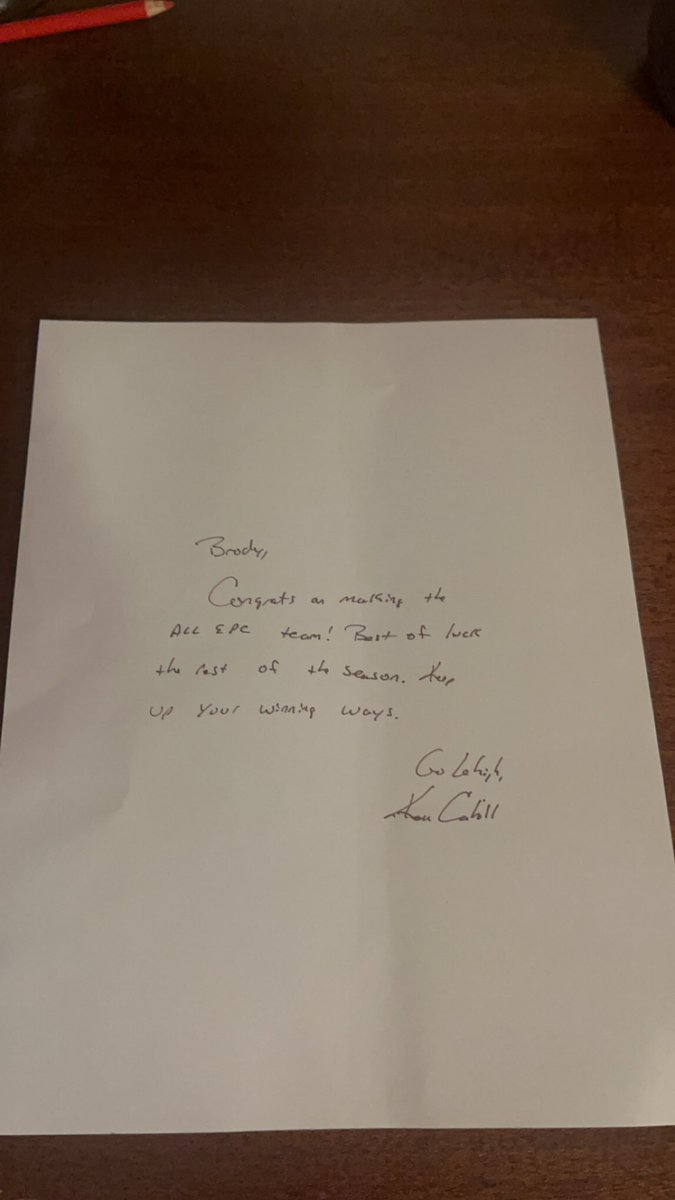 Brody,
Congrats on making the
ALL EPC team! Best of luck
the rest of the season. Keep
up your winning ways.
Go Lehigh,
Cahill